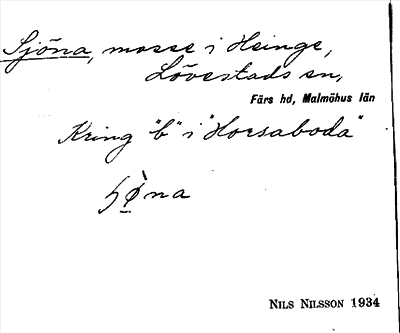 Sjöna, mosse i Heinge,
Lövestads sn,
Färs hd, Malmöhus län
Kring "b" i "Horsaboda"
NILS NILSSON 1934